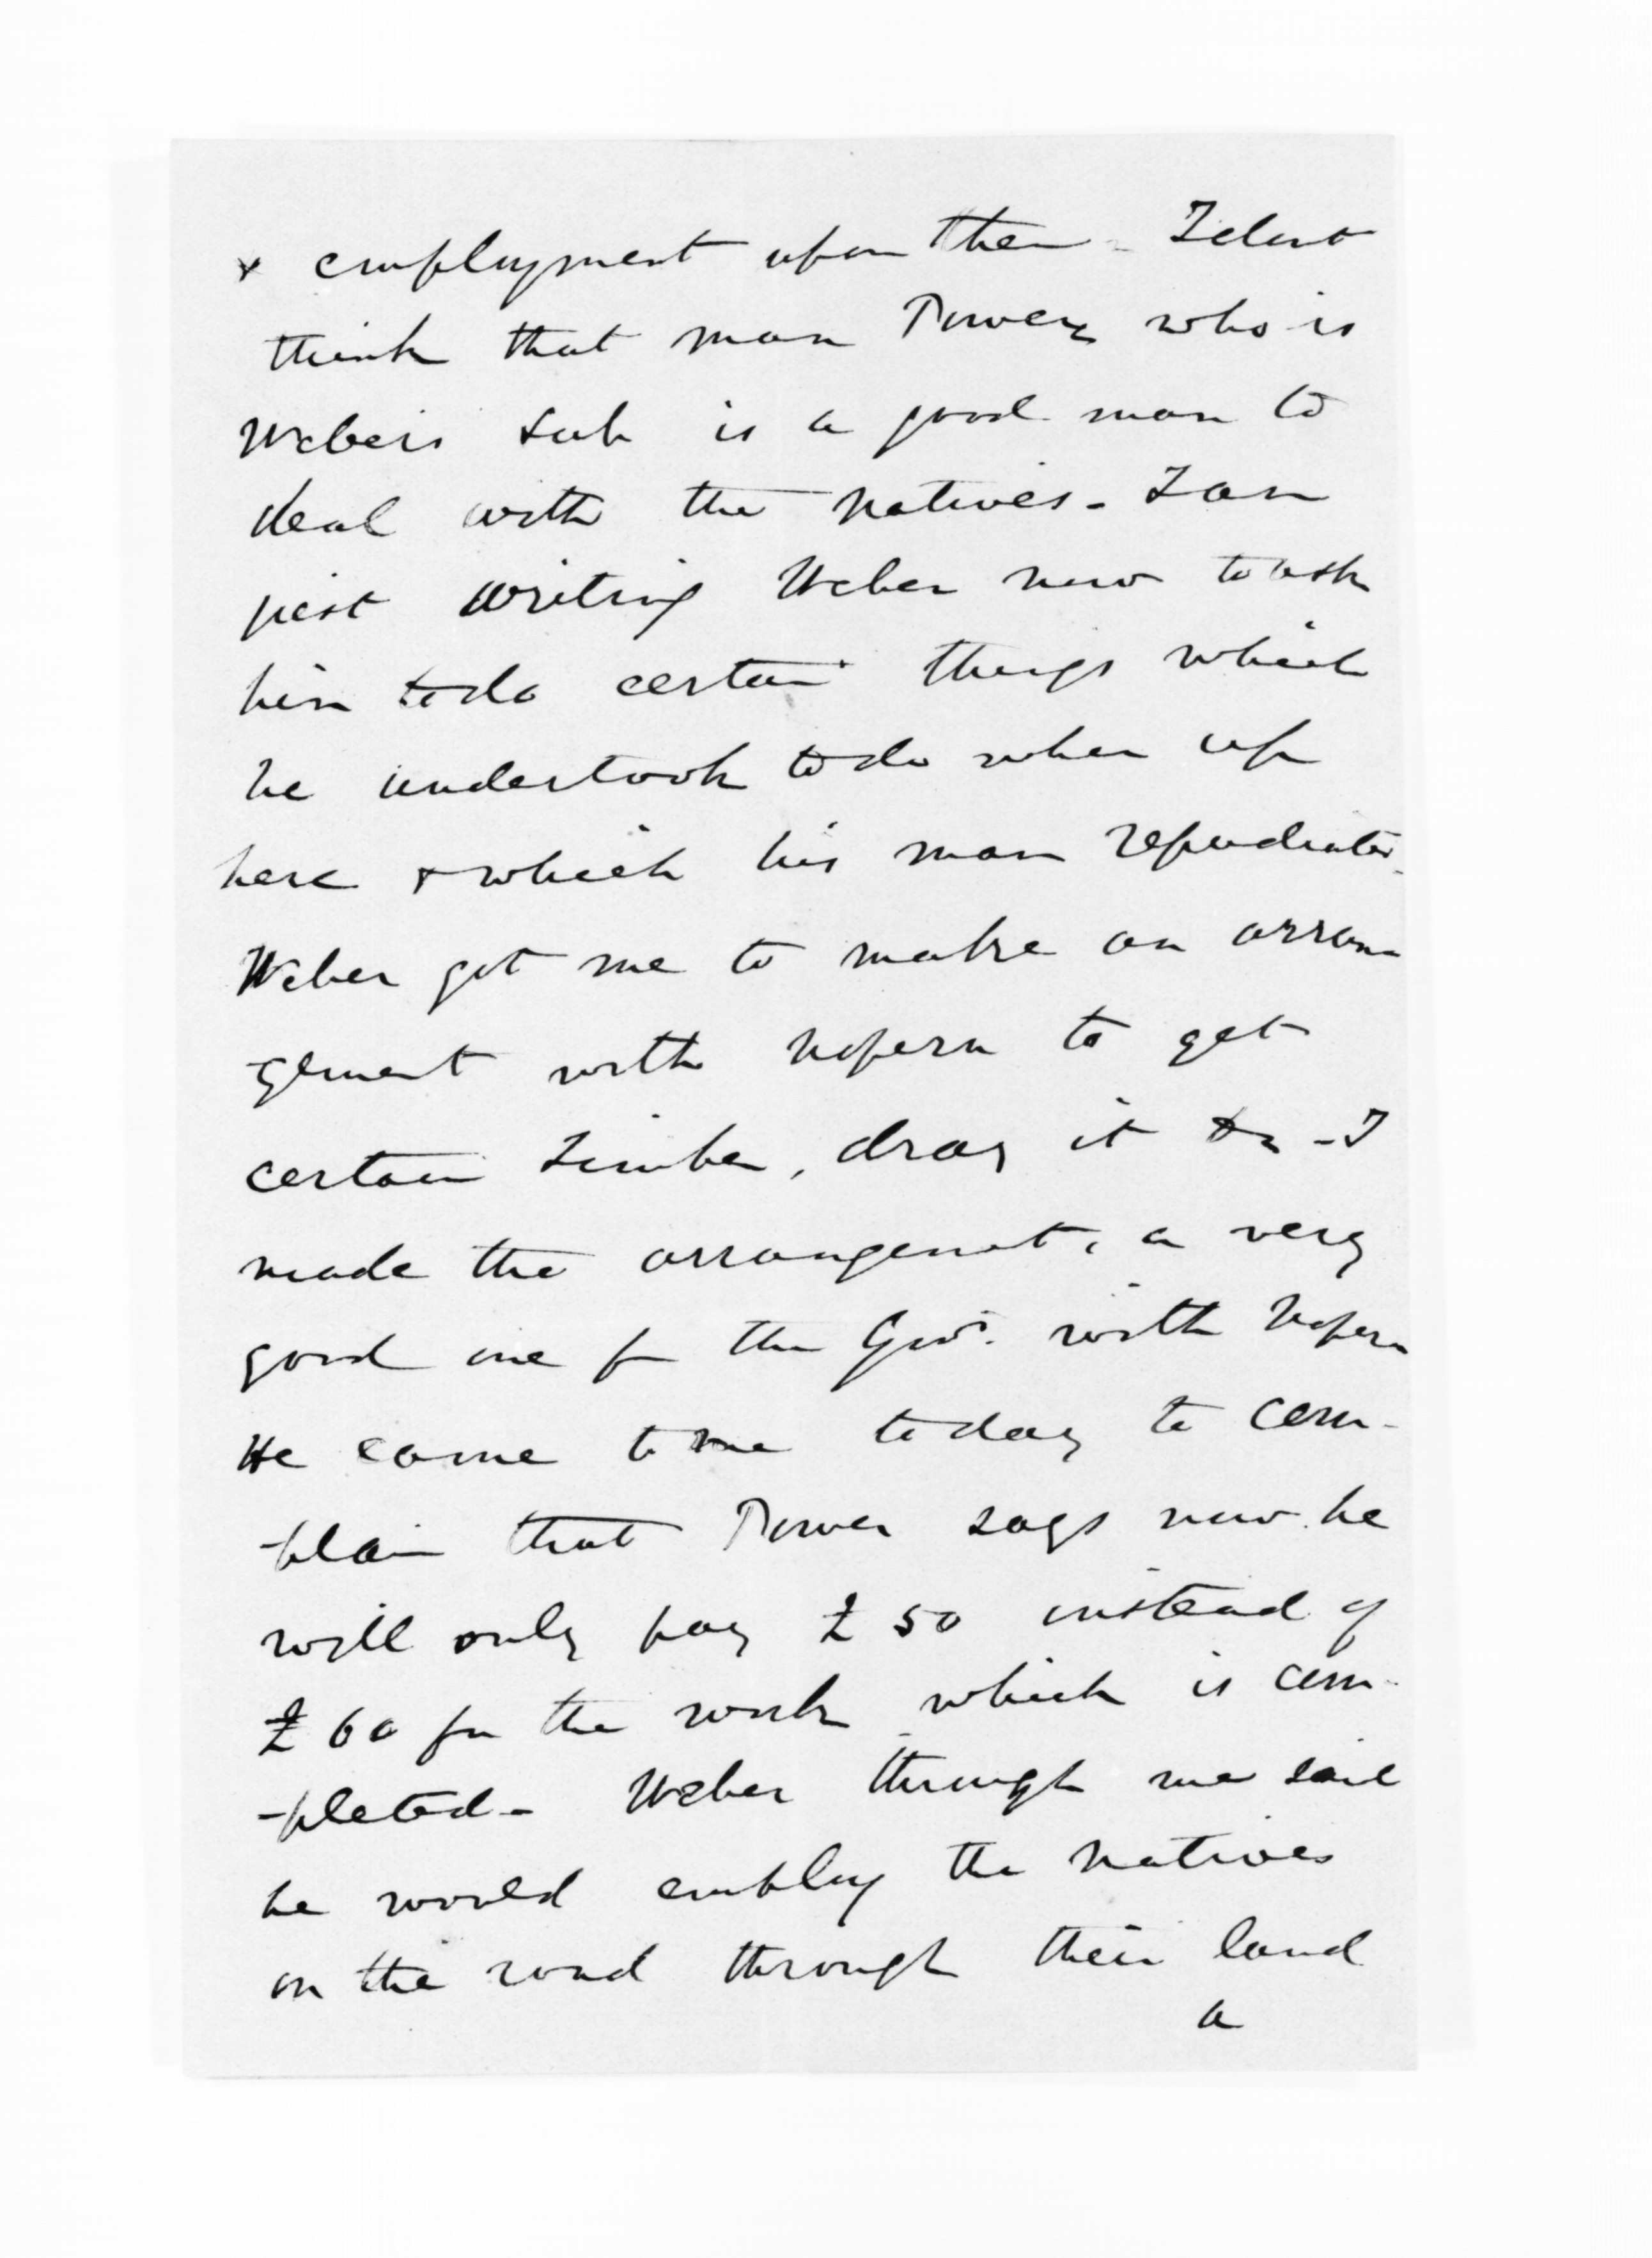 & employment upon them - I dont
think that man Power who is
Webers sub is a good man to
deal with the natives - I am
just writing Weber now to ask
him to do certain things which
he undertook to do when up
here & which his man repudiates.
Weber got me to make an arran
-gement with Nopera to get
certain timber, drag it &c - I
made the arrangemt, a very
good one for the Govt. with Nopera
He came to me today to com-
-plain that Power says now he
will only pay £50 instead of
£60 for the work which is com-
-pleted - Weber through me said
he would employ the natives
on the road through their land
a